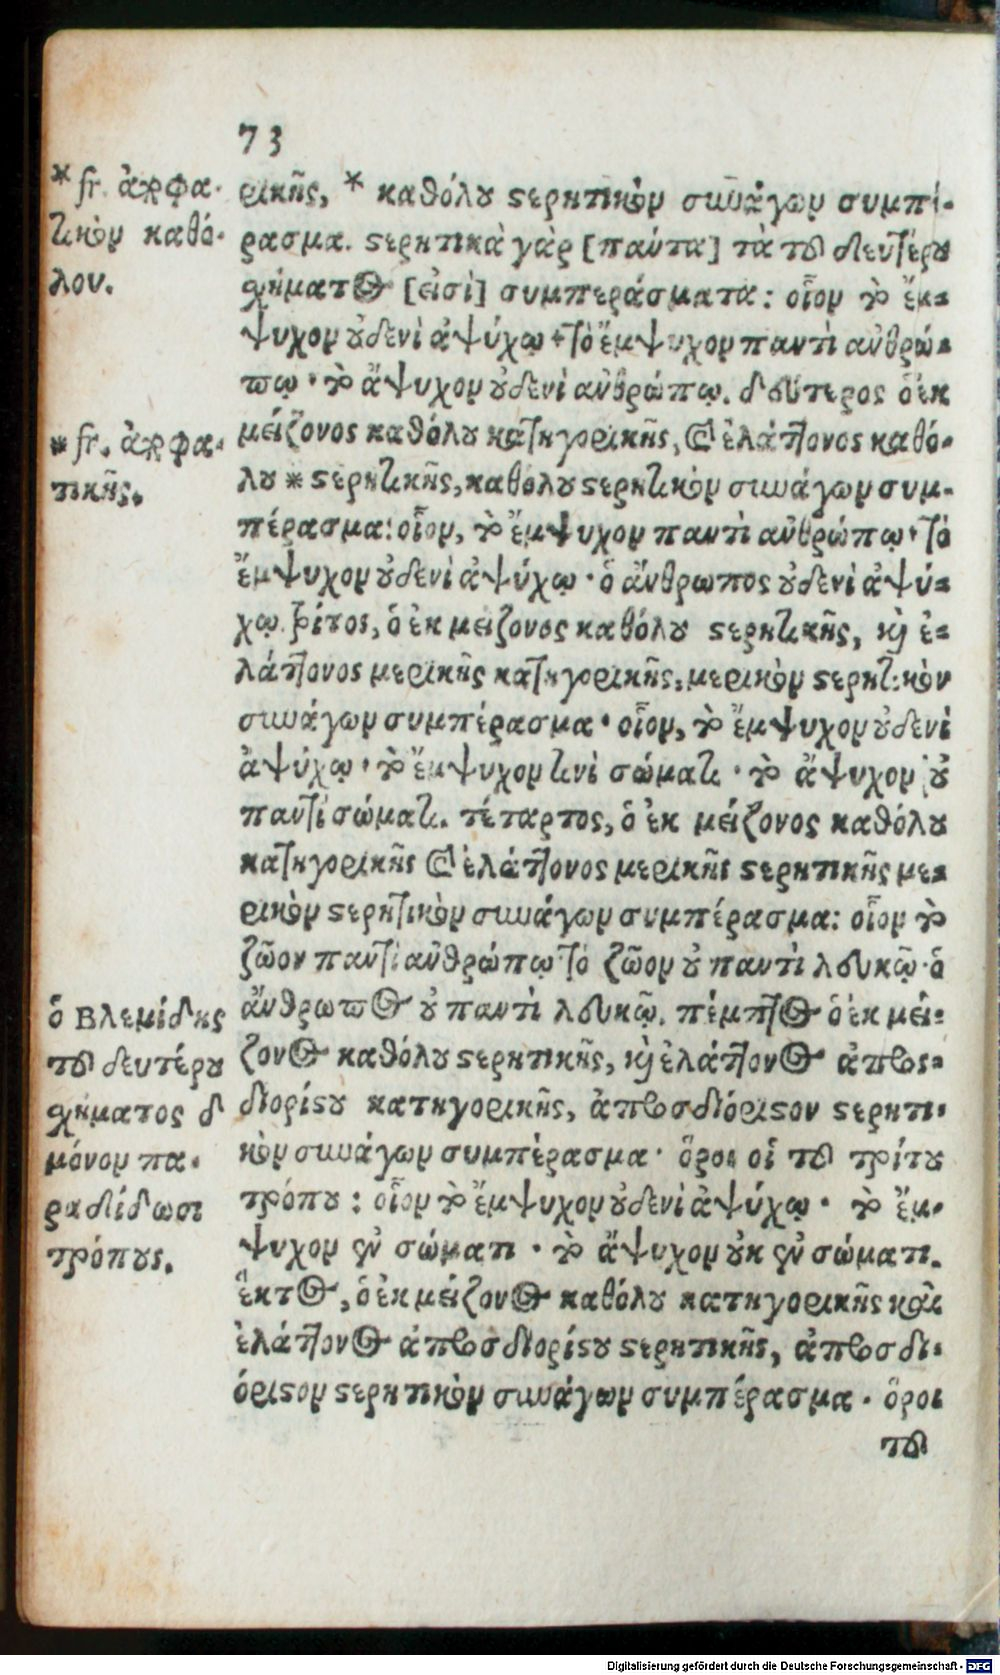 73
* fr. ἀποφα-
τικὸν καθό-
λου.
ρικῆς, * καθόλου στερητικὸν συνάγων συμπέ-
ρασμα. στερητικὰ γὰρ [πάντα] τὰ τοῦ δευτέρου
σχήματος [εἰσὶ] συμπεράσματα: οἷον τὸ ἔμ-
ψυχον οὐδενὶ ἀψύχῳ· τὸ ἔμψυχον παντὶ ἀνθρώ-
πῳ· τὸ ἄψυχον οὐδενὶ ἀνθρώπῳ. δεύτερος ὁ ἐκ
μείζονος καθόλου κατηγορικῆς, καὶ ἐλάττονος καθό-
* fr. ἀποφα-
τικῆς.
λου * στερητικῆς, καθόλου στερητικὸν συνάγων συμ-
πέρασμα: οἷον, τὸ ἔμψυχον παντὶ ἀνθρώπῳ· τὸ
ἔμψυχον οὐδενὶ ἀψύχῳ· ὁ ἄνθρωπος οὐδενὶ ἀψύ-
χῳ. τρίτος, ὁ ἐκ μείζονος καθόλου στερητικῆς, καὶ ἐ-
λάττονος μερικῆς κατηγορικῆς, μερικὸν στερητικὸν
συνάγων συμπέρασμα· οἷον, τὸ ἔμψυχον οὐδενὶ
ἀψύχῳ· τὸ ἔμψυχον τινὶ σώματι· τὸ ἄψυχον οὐ
παντὶ σώματι. τέταρτος, ὁ ἐκ μείζονος καθόλου
κατηγορικῆς καὶ ἐλάττονος μερικῆς στερητικῆς με-
ρικὸν στερητικὸν συνάγων συμπέρασμα: οἷον τὸ
ζῶον παντὶ ἀνθρώπῳ· τὸ ζῶον οὐ παντὶ λευκῷ· ὁ
ἄνθρωπος οὐ παντὶ λευκῷ. πέμπτος ὁ ἐκ μεί-
ὁ Βλεμίδης
τοῦ δευτέρου
σχήματος δ
μόνον πα-
ραδίδωσι
τρόπους.
ζονος καθόλου στερητικῆς, καὶ ἐλάττονος ἀπροσ-
διορίστου κατηγορικῆς, ἀπροσδιόριστον στερητι-
κὸν συνάγων συμπέρασμα· ὅροι οἱ τοῦ τρίτου
τρόπου: οἷον τὸ ἔμψυχον οὐδενὶ ἀψύχῳ· τὸ ἔμ-
ψυχον ἐν σώματι· τὸ ἄψυχον οὐκ ἐν σώματι.
ἕκτος, ὁ ἐκ μείζονος καθόλου κατηγορικῆς καὶ
ἐλάττονος ἀπροσδιορίστου στερητικῆς, ἀπροσδι-
όριστον στερητικὸν συνάγων συμπέρασμα. ὅροι
τοῦ
Digitalisierung gefördert durch die Deutsche Forschungsgemeinschaft - DFG